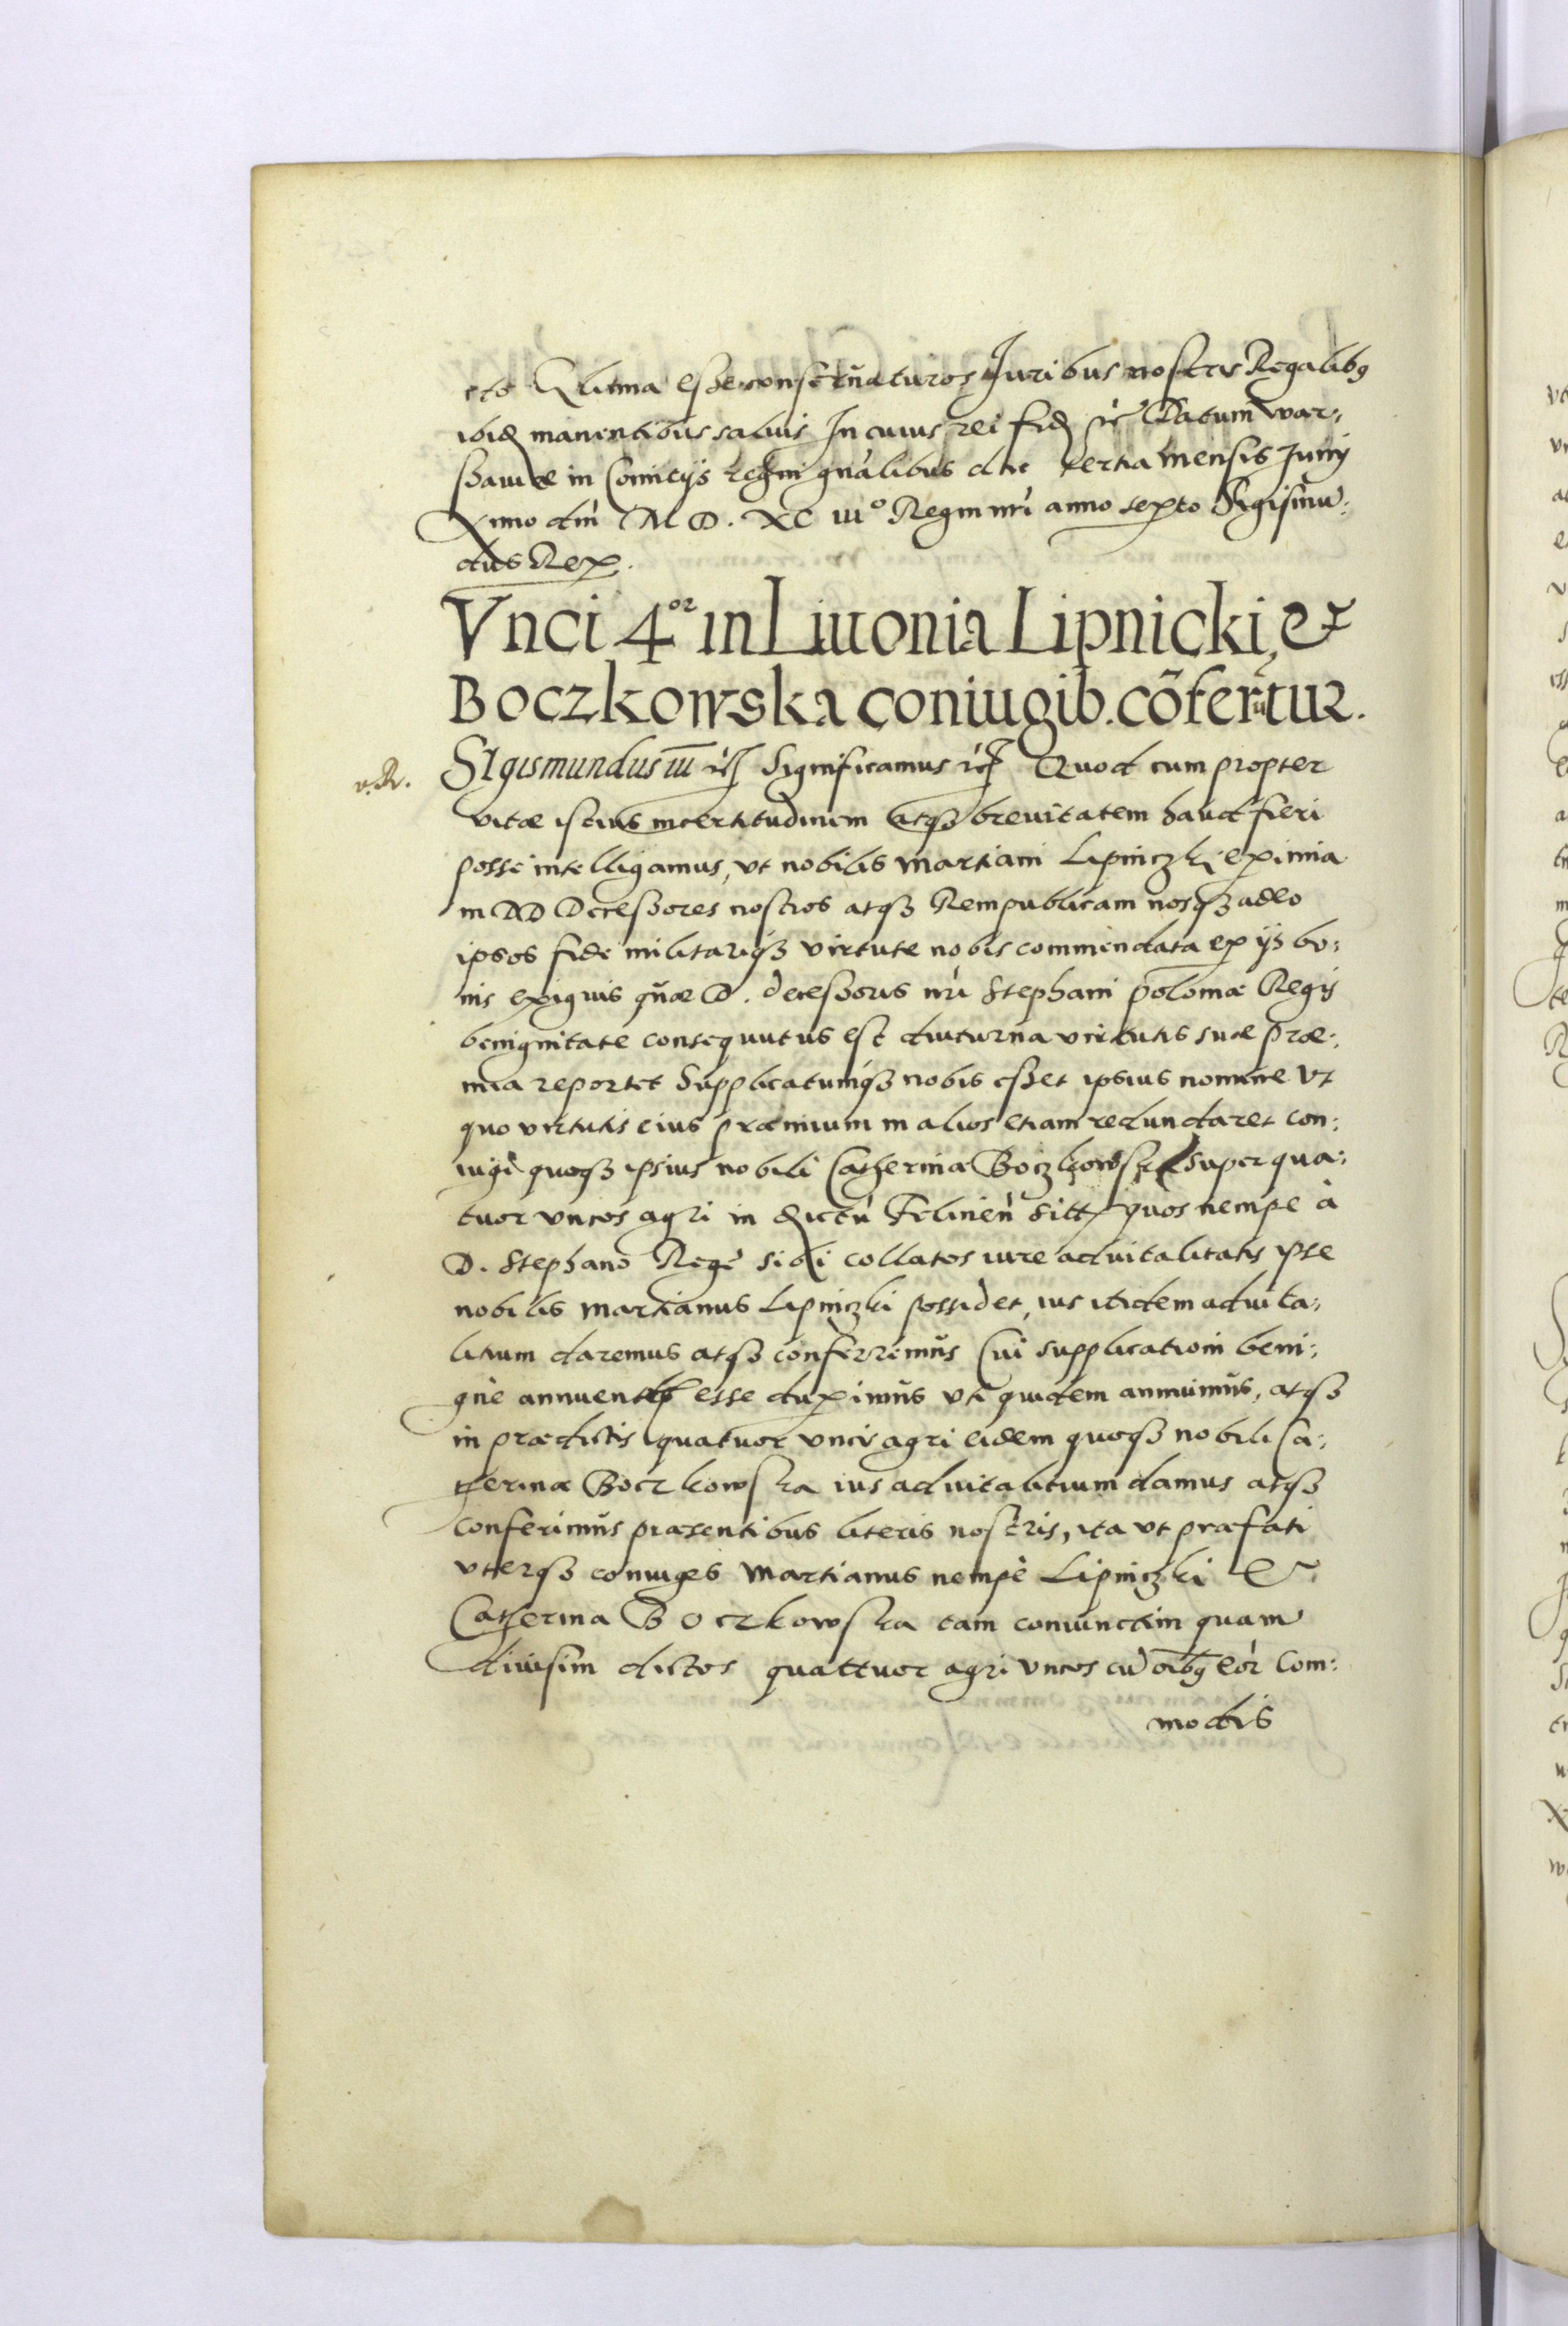 esse conseruaturos Juribus nostris Regalibq
ibid manentibus saluis In cuius rei fid etc Datum War:
shauiæ in Comitijs Regni gnalibus die tertia mensis Junij
Anno dni M D. XC iii° Regni nri anno sexto Sigismu:
dus Rex.
Vnci 4or in Liuonia Lipnicki, et
Boczkowska coniugib. cõferũtur.
v.R. SIgismundus iii etc Significamus etc Quod cum propter
vitæ istius incertitudinem atqȝ breuitatem haud fieri
posse intelligamus, vt nobilis Martiani Lipiniczki eximia
in DD Decessores nostros atqȝ Rempublicam nosqȝ adeo
ipsos fide militariqȝ virtute nobis commendata ex ijs bo:
nis exiguis quæ D. decessoris nri Stephani Poloniæ Regis
benignitate consequutus est diuturna virtutis suæ præ:
mia reportet Supplicatumqȝ nobis esset ipsius nomine vt
quo virtutis eius præmium in alios etiam redundaret con:
iugi quoqȝ ipsius nobili Catherinæ Boczkowska super qua:
tuor vncos agri in dictu Felinen sitt quos nempe à
D. Stephano Rege sibi collatos iure aduitalitatis ipse
nobilis Martianus Lipniczki possidet, ius itidem aduita:
litium daremus atqȝ conferremus Cui supplicationi beni:
gnè annuend esse duximus vti quidem annuimus, atqȝ
in prædictis quatuor vncis agri eidem quoqȝ nobili Ca:
terinæ Boczkowska ius aduitalitium damus atqȝ
conferimus præsentibus literis nostris, ita vt præfati
vterqȝ coniuges Martianus nempè Lipniczki et
Catherina Boczkowska tam coniunctim quam
diuisim dictos quattuor agri vncos cu oibq eor Com:
modis